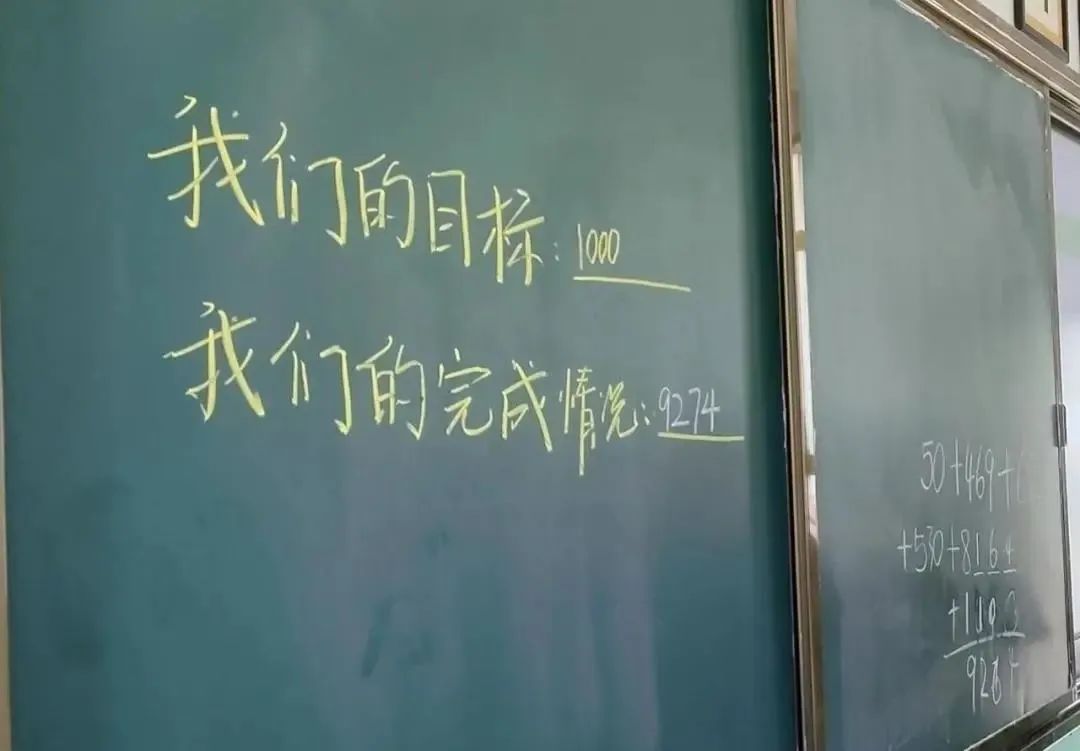 我们的目标：1000
我们的完成情况：9274
50+469+
+530+8164
+1193